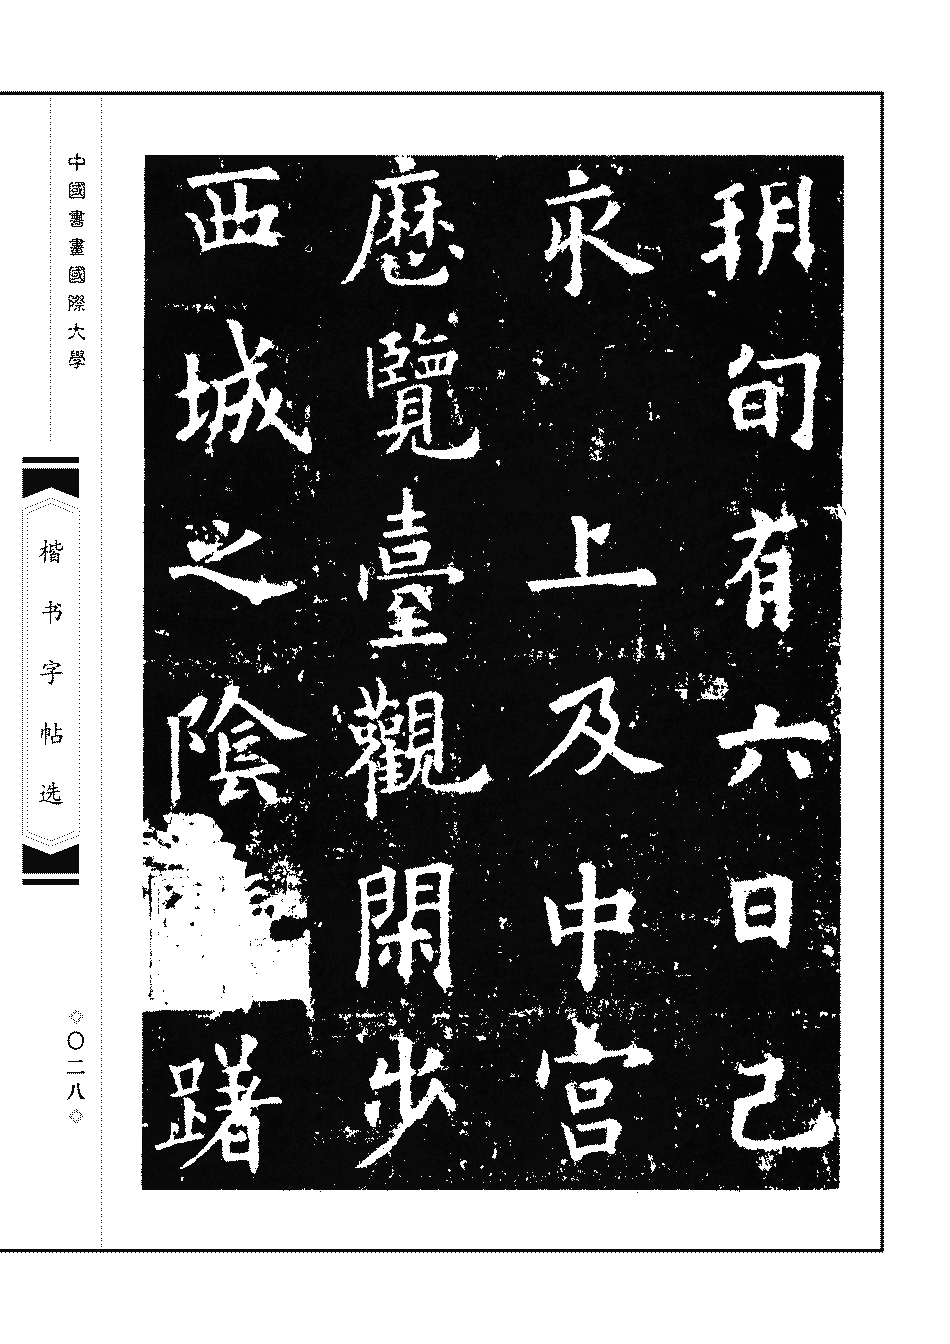 玥旬有六日己
亥上及中宫
歷覽臺觀閑步
西城之陰
躇
中國書畫國際大學
楷书字帖选
◇〇二八◇